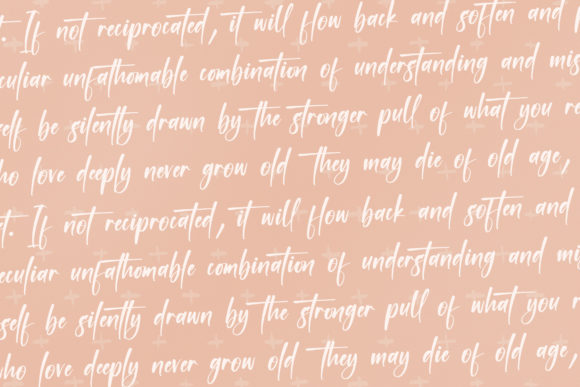 t. If not reciprocated, it will flow back and soften and p
eculiar unfathomable combination of understanding and mis
self be silently drawn by the stronger pull of what you re
ho love deeply never grow old they may die of old age,
et. If not reciprocated, it will flow back and soften and
eculiar unfathomable combination of understanding and mi
self be silently drawn by the stronger pull of what you r
ho love deeply never grow old they may die of old age,